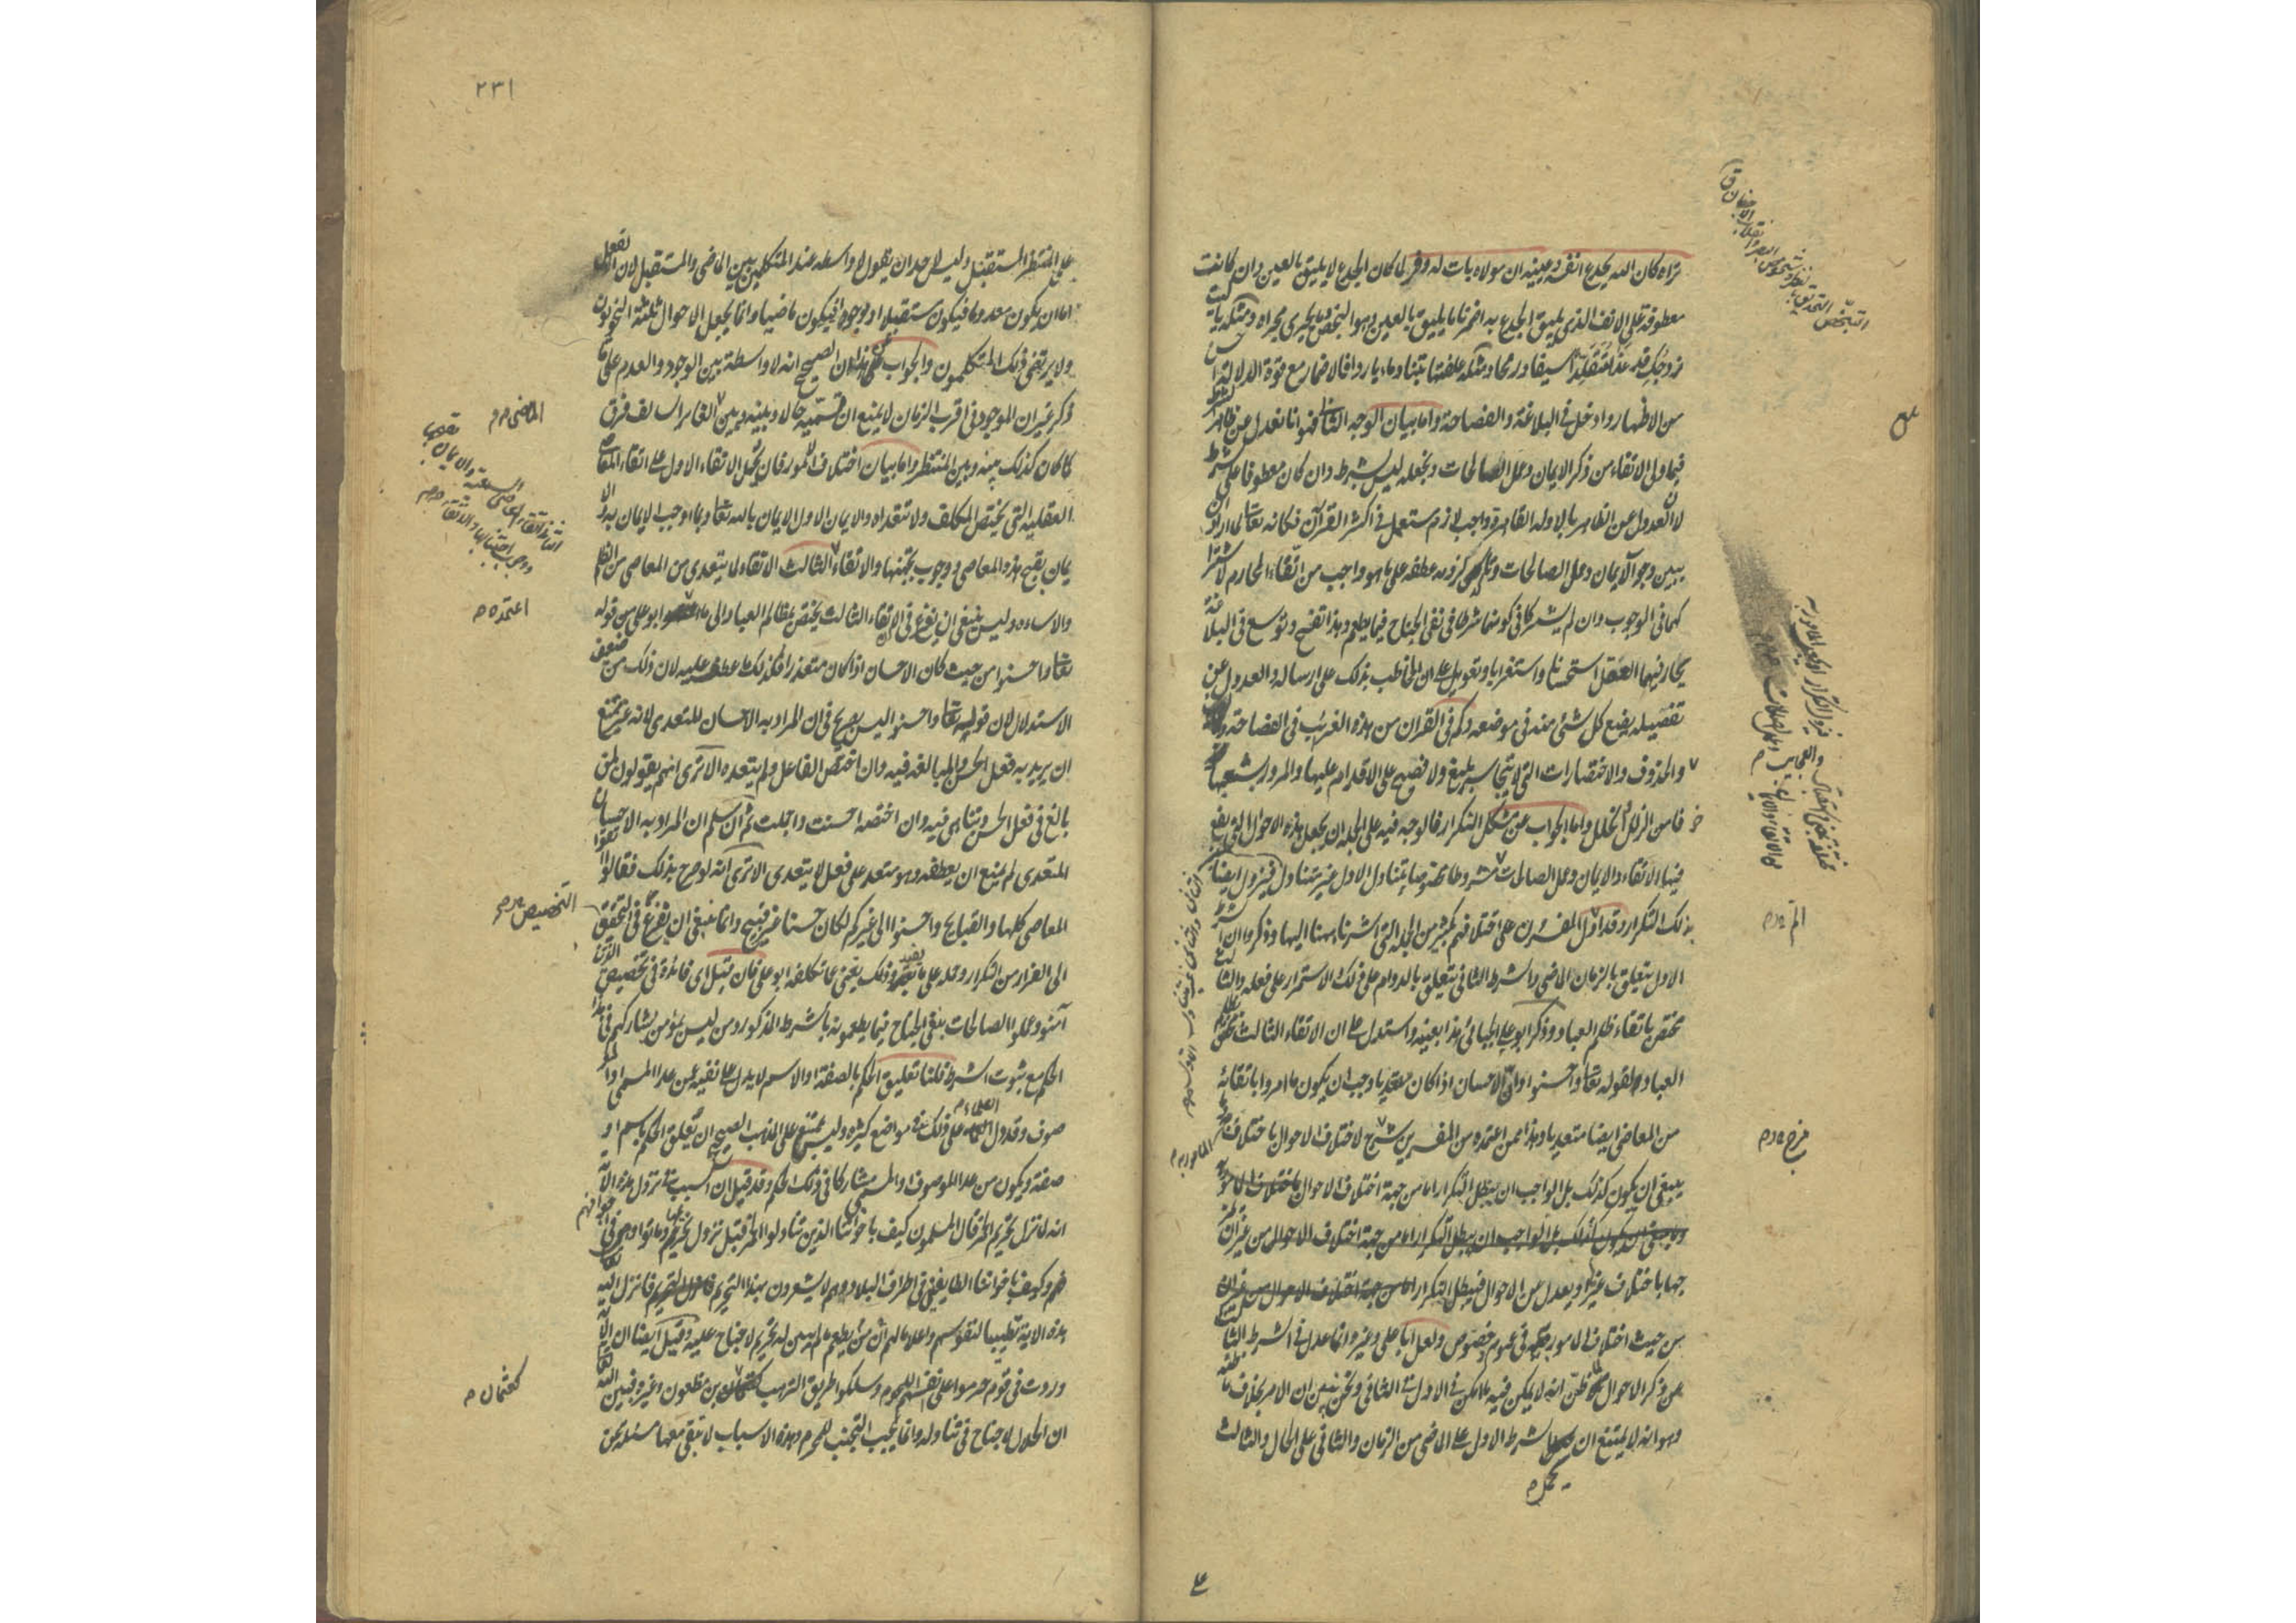 تراه كان الله يجدع انفه وعينيه ان مولاه بات له وفر لما كان الجدع لا يليق بالعين وان كانت
معطوفة على الانف الذي يليق الجدع به اضمر ما يليق بالعين وهو البخص وما يجري مجراه ومثله يا ليت
زوجك قد غدا متقلدا سيفا ورمحا ومثله علفتها تبنا وماء باردا فالاضمار مع قوة الدلالة احسن
من الاظهار وادخل في البلاغة والفصاحة واما بيان الوجه الثاني فهو انا نعدل عن ظاهر الشرط
فيما ولى الاتقاء من ذكر الايمان وعمل الصالحات ونجعله ليس بشرط وان كان معطوفا على الشرط
لان العدول عن الظاهر بالادلة القاهرة واجب لازم مستعمل في اكثر القرآن فكانه تعالى لما اراد ان
يبين وجوب الايمان وعمل الصالحات عطفه على ما هو واجب من اتقاء المحارم لاشترا
كهما في الوجوب وان لم يشتركا في كونهما شرطا في نفي الجناح فيما يطعم وهذا تفسح وتوسع في البلاغة
يحار فيهما العقل استحسانا واستغرابا وتعويل على ان المخاطب بذلك على ارساله والعدول عن
تفصيله يضع كل شئ منه في موضعه وكم في القرآن من هذه الغرائب في الفصاحة
والحذوف والاختصارات التي لا يتجاسر بليغ ولا فصيح على الاقدام عليها والمرور بشعبها
خوفا من الزلل والخلل واما الجواب عن مشكل التكرار فالوجه فيه على الجملة ان يجعل هذه الاحوال التي يقع
فيها الاتقاء والايمان وعمل الصالحات مشروطا مخصوصا يتناول الاول غير متناول فيزول ايضا
بذلك التكرار وقد اول المفسرون على اختلافهم بكثير من الجملة التي اشرنا ههنا اليها وذكروا ان الشرط
الاول يتعلق بالزمان الماضي والشرط الثاني يتعلق بالدوام على ذلك والاستمرار على فعله والثالث
مختص باتقاء ظلم العباد وذكر ابو علي الجبائي هذا بعينه واستدل على ان الاتقاء الثالث يختص بظلم
العباد بقوله تعالى واحسنوا وان الاحسان اذا كان متعديا وجب ان يكون ما امروا باتقائه
من المعاصي ايضا متعديا وهذا ممن اعتمده من المفسرين خرج لاختلاف الاحوال باختلاف المامور به
ينبغي ان يكون كذلك بل الواجب ان يبطل التكرار اما من جهة اختلاف الاحوال
من جهة اختلاف الاحوال من غير ان
جها باختلاف غيرها ويعدل من الاحوال فيبطل التكرار
من حيث اختلاف المامور به في عموم وخصوص ولعل ابا علي وغيره انما عدل في الشرط الثالث
عن ذكر الاحوال لما ظن انه لا يمكن فيه ما امكن في الاول والثاني ونحن نبين ان الامر بخلاف ما ظنه
وهو انه لا يمتنع ان يحمل الشرط الاول على الماضي من الزمان والثاني على الحال والثالث
يحمل م
٢٣١
على المنتظر المستقبل وليس لاحد ان يقول لا واسطة عند المتكلمين بين الماضي والمستقبل لان الفعل
اما ان يكون معدوما فيكون مستقبلا او موجودا فيكون ماضيا وانما يجعل الاحوال ثلاثة النحويون
ولا يرتضي ذلك المتكلمون والجواب عن هذا ان الصحيح انه لا واسطة بين الوجود والعدم على ما
ذكر غير ان الموجود في اقرب الزمان لا يمنع ان نسميه حالا وبينه وبين الغابر السالف فرق
كما كان كذلك بينه وبين المنتظر واما بيان اختلاف المامور فان يحمل الاتقاء الاول على اتقاء المعاصي
العقلية التي تختص المكلف ولا تتعداه والايمان الاول الايمان بالله تعالى وبما اوجب الايمان به والا
يمان بقبح هذه المعاصي ووجوب تجنبها والاتقاء الثالث الاتقاء لما يتعدى من المعاصي من الظلم
والاساءة وليس ينبغي ان يفزع في ان الاتقاء الثالث يختص بمظالم العباد الى ما اعتمده ابو علي من قوله
تعالى واحسنوا من حيث كان الاحسان اذا كان متعديا فكذلك ما عطف عليه لان ذلك من ضعف
الاستدلال لان قوله تعالى واحسنوا ليس بصريح في ان المراد به الاحسان المتعدي لانه غير ممتنع
ان يريد به فعل الحسن والمبالغة فيه وان اختص الفاعل ولم يتعده الا ترى انهم يقولون لمن
بالغ في فعل الحسن وتناهى فيه وان اختصه احسنت واجملت ثم ان سلم ان المراد به الاحسان
المتعدي لم يمنع ان يعطفه وهو متعد على فعل لا يتعدى الا ترى انه لو صرح بذلك فقال اتقوا
المعاصي كلها والقبايح واحسنوا الى غيركم لكان حسنا غير قبيح وانما ينبغي ان يفزع في التحقق
الى الفرار من التكرار وحمله على ما يفيد وذلك يغني عما تكلفه ابو علي فان قيل اي فائدة في تخصيص الذين
آمنوا وعملوا الصالحات بنفي الجناح فيما يطعمونه بالشرط المذكور ومن ليس بمؤمن يشاركهم في هذا
الحكم مع ثبوت الشرط قلنا تعليق الحكم بالصفة او الاسم لا يدل على نفيه عمن عدا المسمى او المو
صوف وقد دل العلماء على ذلك في مواضع كثيرة وليس يمتنع على المذهب الصحيح ان تعلق الحكم باسم او
صفة ويكون من عدا الموصوف او المسمى مشاركا في ذلك الحكم وقد قيل ان السبب في نزول هذه الآية
انه لما نزل تحريم الخمر قال المسلمون كيف باخواننا الذين تناولوا الخمر قبل نزول تحريمها وماتوا وهي في اجوافهم
وكيف باخواننا الغايبين في اطراف البلاد وهم لا يشعرون بهذا التحريم فانزل الله
هذه الآية تطييبا لنفوسهم واعلاما لهم ان من يطعم ما لم يبين له تحريم لا جناح عليه وقيل ايضا ان الآية
وردت في قوم حرموا على انفسهم اللحوم وسلكوا طريق الترهب كعثمان بن مظعون وغيره فبين الله تعالى
ان الحلال لا جناح في تناوله وانما يجب التجنب للمحرم وهذه الاسباب لا تبقى معها مسئلة نحن
الماضي م
اعتمده م
التخصيص م
كعثمان م
العلماء م
المامور به م
خرج م